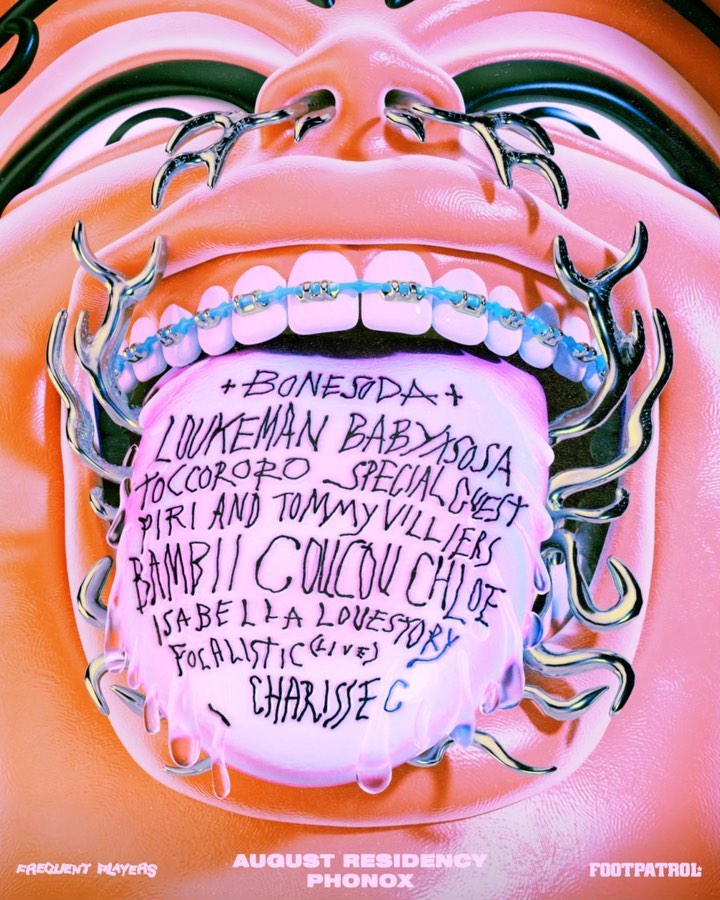 + BONESODA +
LOUKEMAN BABYXSOSA
TOCCORORO SPECIAL GUEST
PIRI AND TOMMY VILLIERS
BAMBII COUCOU CHLOE
ISABELLA LOVESTORY
FOCALISTIC (LIVE)
CHARISSE C
FREQUENT PLAYERS
AUGUST RESIDENCY
PHONOX
FOOTPATROL